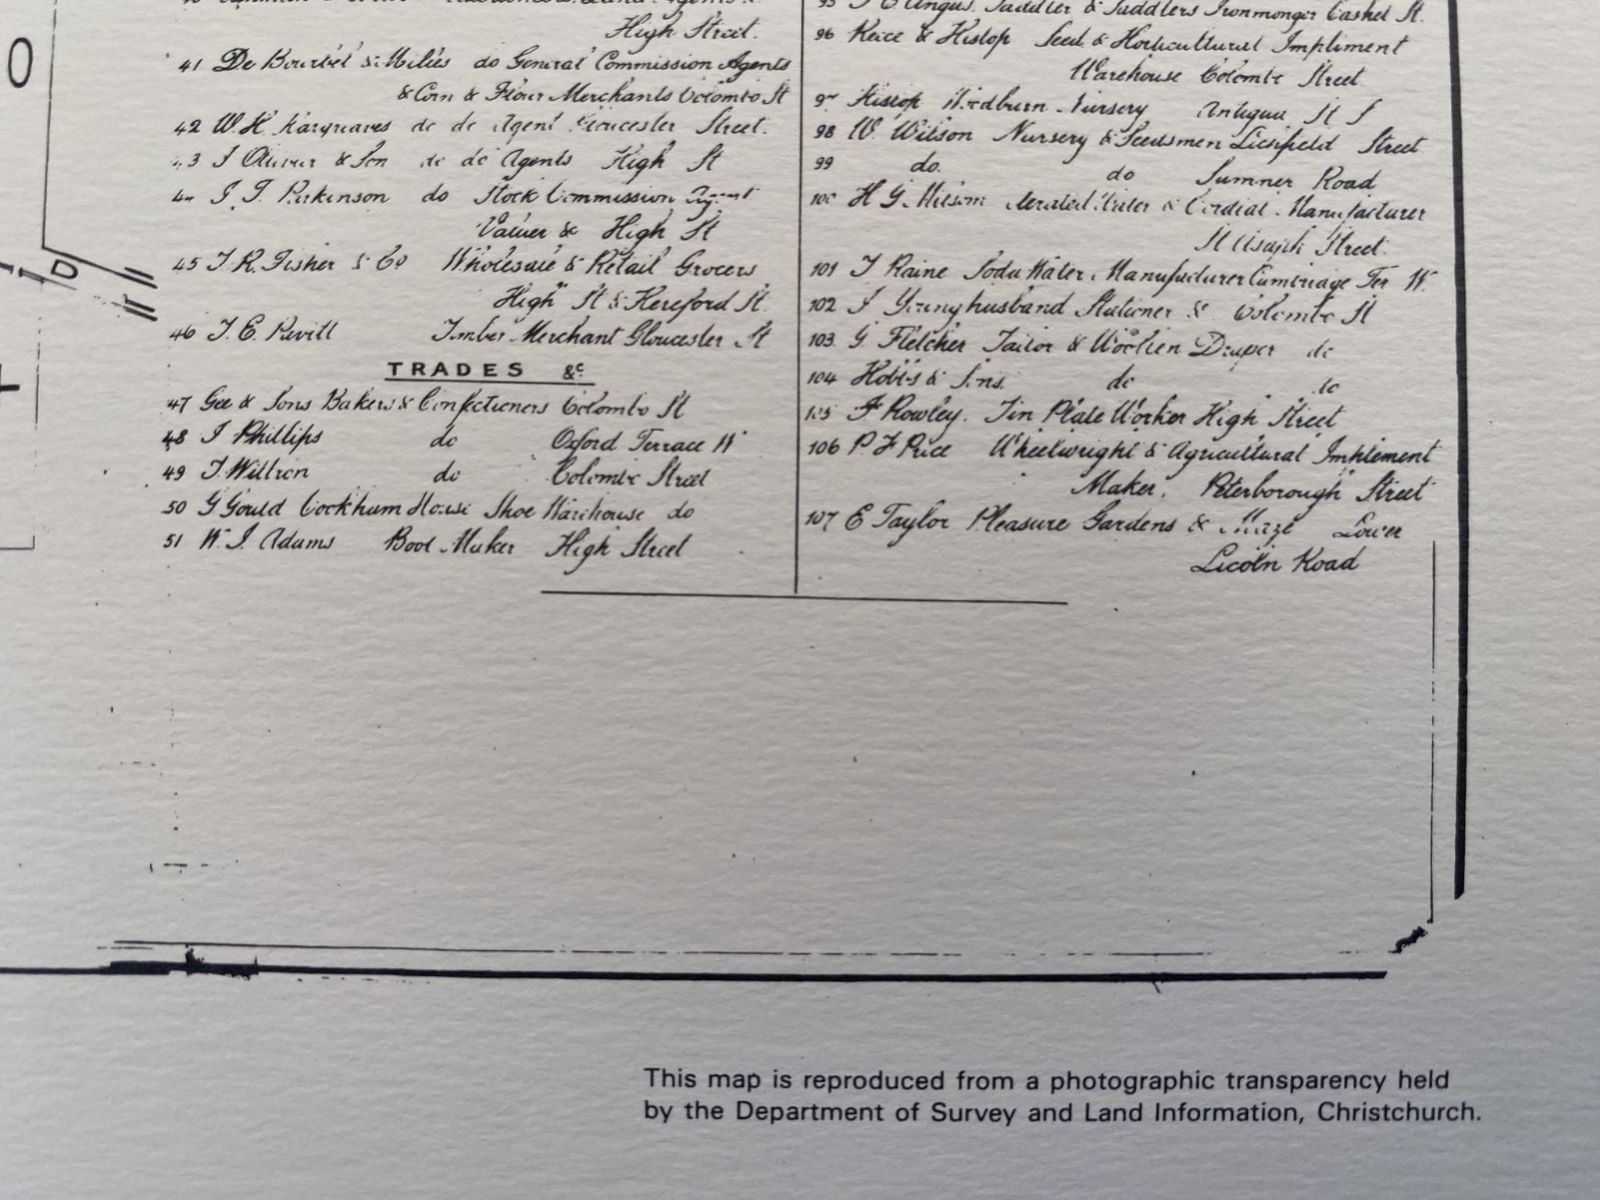 O
D
High Street.
41 De Bourbel & Miles do General Commission Agents
& Corn & Flour Merchants Colombo St
42 W. H. Hargreaves do do Agent Gloucester Street.
43 J Olliver & Son do do Agents High St
J. T. Parkinson do Stock Commission Agent
Valuer & High St
45 T. R. Fisher & Co Wholesale & Retail Grocers
High St & Hereford St.
46 T. E. Revitt Timber Merchant Gloucester St
TRADES &c
47 Gee & Sons Bakers & Confectioners Colombo St
48 J Phillips do Oxford Terrace W
49 J. do Colombo Street
50 G Gould Cockham House Shoe Warehouse do
51 W. J. Adams Boot Maker High Street
95 Angus. Saddler & Saddlers Ironmonger Cashel St.
96 & Hislop Seed & Horticultural Impliment
Warehouse Colombo Street
Hislop Nursery Antigua St S
98 W. Wilson Nursery & Seedsmen Lichfield Street
99 do. do Sumner Road
100 H G. Milsom Aerated Water & Cordial Manufacturer
St Asaph Street.
101 J Raine Soda Water Manufacturer Cambridge Ter W.
102 J Younghusband Stationer & Colombo St
103. G Fletcher Tailor & Woollen Draper do
104 Hobbs & Sons. do do
105 F Rowley. Tin Plate Worker High Street
106 P F Price Wheelwright & Agricultural Implement
Maker. Peterborough Street
107 E Taylor Pleasure Gardens & Maze Lower
Licoln Road
This map is reproduced from a photographic transparency held
by the Department of Survey and Land Information, Christchurch.